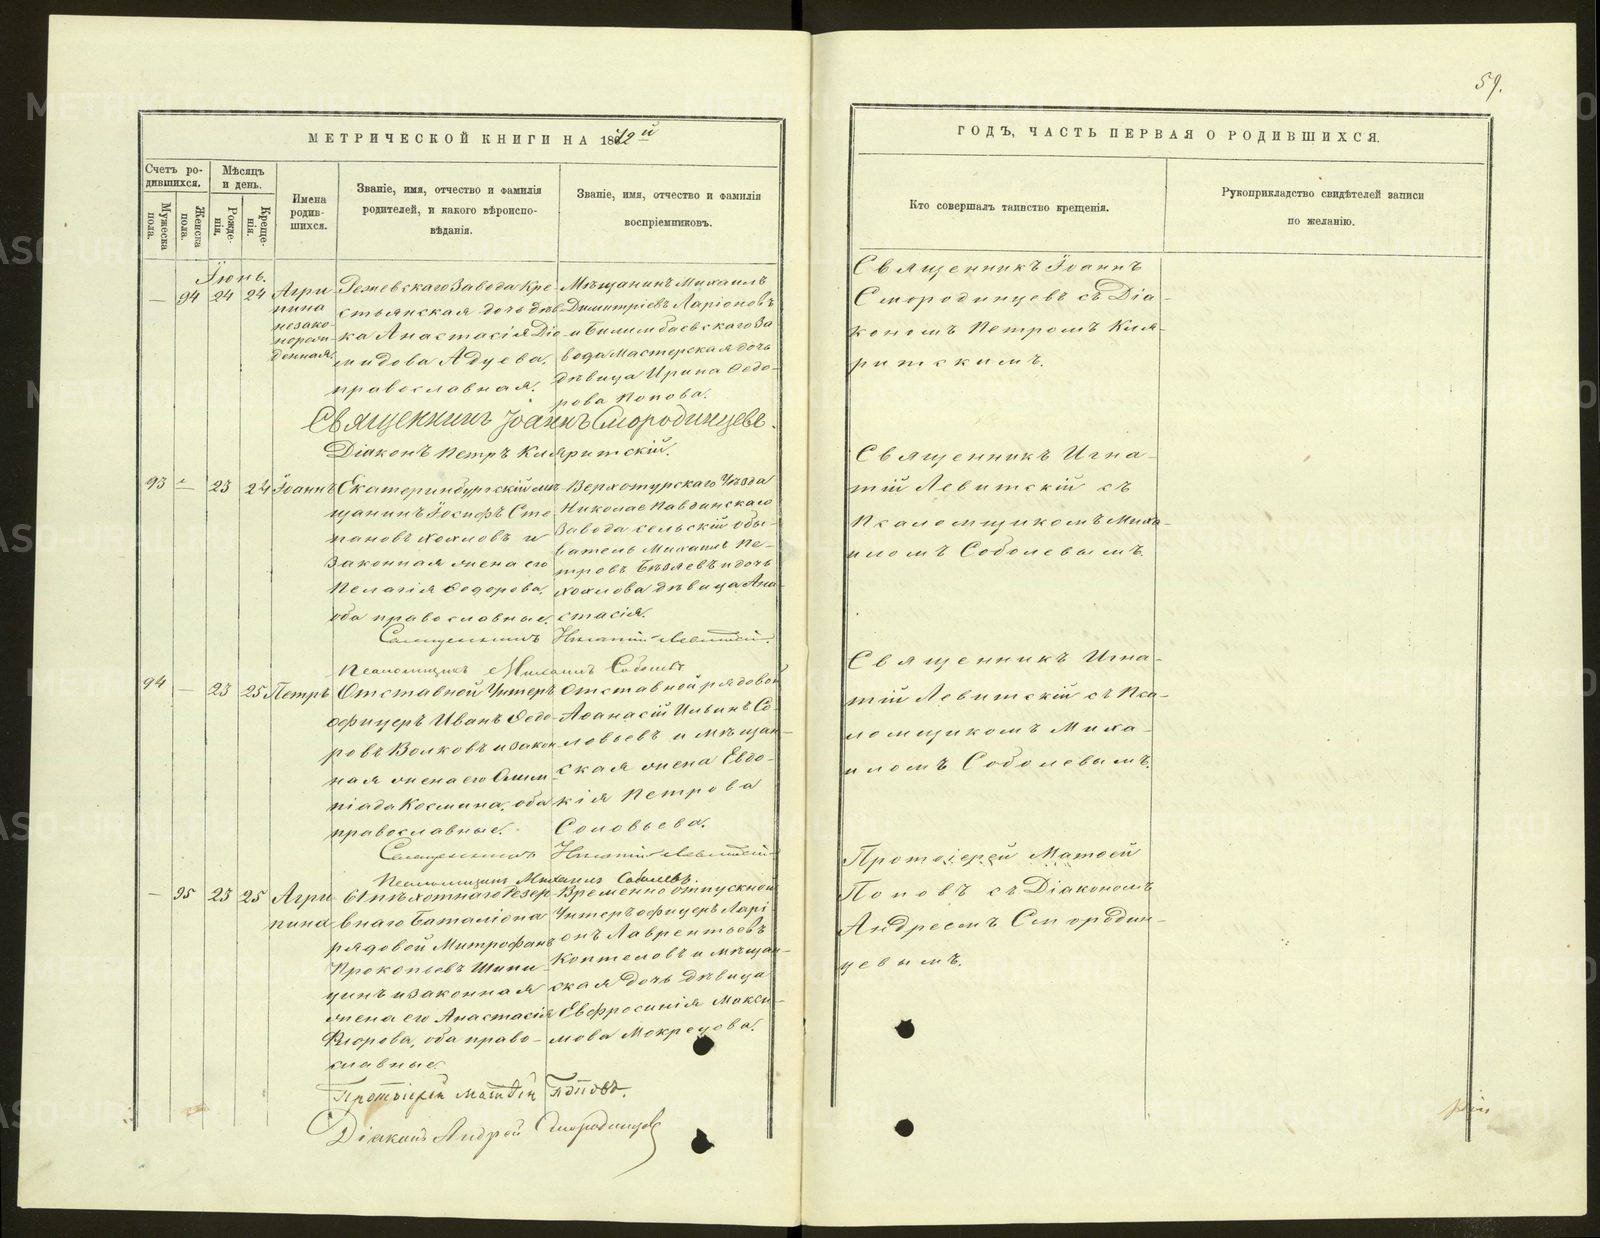 59.
МЕТРИЧЕСКОЙ КНИГИ НА 1882й
ГОДЪ, ЧАСТЬ ПЕРВАЯ О РОДИВШИХСЯ.
Счетъ ро-
дившихся.
Мужеска
пола.
Женска
пола.
Мѣсяцъ
и день.
Рожде-
нія.
Креще-
нія.
Имена
родив-
шихся.
Званіе, имя, отчество и фамилія
родителей, и какого вѣроиспо-
вѣданія.
Званіе, имя, отчество и фамилія
воспріемниковъ.
Кто совершалъ таинство крещенія.
Рукоприкладство свидѣтелей записи
по желанію.
Іюнь.
— 94 24 24
Агри-
пина
незако-
норож-
денная
Режевскаго Завода кре-
стьянская дочь дѣв-
ка Анастасія Діо-
мидова Адуева,
православная.
Мѣщанинъ Михаилъ
Димитріевъ Ларіоновъ
и Билимбаевскаго За
вода мастерская дочь
дѣвица Ирина Ѳедо-
рова Попова.
Священникъ Іоаннъ
Смородинцевъ съ Діа-
кономъ Петромъ Кля-
ритскимъ.
Священникъ Іоаннъ Смородинцевъ.
Діаконъ Петръ Кляритскій.
93 — 23 24 Іоаннъ
Екатеринбургскій мѣ-
щанинъ Іосифъ Сте-
пановъ Хохловъ и
законная жена его
Пелагія Ѳедорова,
оба православные.
Верхотурскаго Уѣзда
Николае Павдинскаго
Завода сельскій обы-
ватель Михаилъ Пе-
тровъ Бѣляевъ и дочь
Хохлова дѣвица Ана-
стасія.
Священникъ Игна-
тій Левитскій съ
Псаломщикомъ Миха-
иломъ Соболевымъ.
Священникъ Игнатій Левитскій.
Псаломщикъ Михаилъ Соболевъ
94 — 23 25 Петръ
Отставной Унтеръ
офицеръ Иванъ Ѳедо-
ровъ Волковъ и закон-
ная жена его Олим-
піада Космина, оба
православные.
Отставной рядовой
Аѳанасій Ильинъ Со-
ловьевъ и мѣщан-
ская жена Евдо-
кія Петрова
Соловьева.
Священникъ Игна-
тій Левитскій съ Пса-
ломщикомъ Миха-
иломъ Соболевымъ.
Священникъ Игнатій Левитскій
Псаломщикъ Михаилъ Соболевъ.
— 95 23 25
Агри-
пина
61 пѣхотнаго Резер-
внаго Баталіона
рядовой Митрофанъ
Прокопьевъ Шипи-
цинъ и законная
жена его Анастасія
Флорова, оба право-
славные.
Временно отпускной
Унтеръ офицеръ Ларі-
онъ Лаврентьевъ
Коптеловъ и мѣщан-
ская дочь дѣвица
Евфросинія Макси-
мова Мокрецова.
Протоіерей Матѳей
Поповъ съ Діакономъ
Андреемъ Смородин-
цевымъ.
Протоіерей Матѳей Поповъ.
Діаконъ Андрей Смородинцевъ